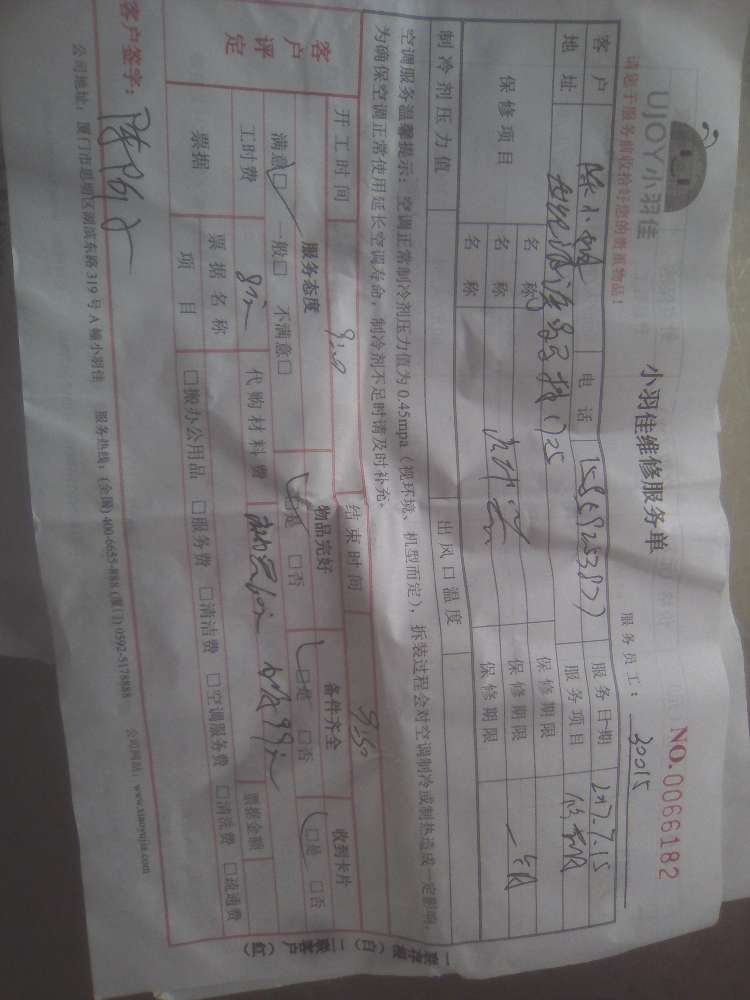 UJOY小羽佳
小羽佳维修服务单
NO.0066182
请您于服务前收拾好您的贵重物品！
服务员工：30015
客户 电话 服务日期 2017.7.15
地址 服务项目
保修项目 名称 保修期限
名称 保修期限
名称 保修期限
制冷剂压力值 出风口温度
空调服务温馨提示：空调正常制冷剂压力值为0.45mpa（视环境、机型而定），拆装过程会对空调制冷或制热造成一定影响，
为确保空调正常使用延长空调寿命，制冷剂不足时请及时补充。
开工时间 结束时间
客户评定 服务态度 物品完好 备件齐全 收到卡片
满意□ 一般□ 不满意□ □是 □否 □是 □否 □是 □否
工时费 代购材料费
票据 票据名称 票据金额
项目 □搬办公用品 □服务费 □清洁费 □空调服务费 □清洗费 □疏通费
客户签字：
公司地址：厦门市思明区湖滨东路319号A幢小羽佳 服务热线：(全国)400-6655-888 (厦门)0592-5178888 公司网站：www.xiaoyujia.com
一联存根（白）二联客户（红）